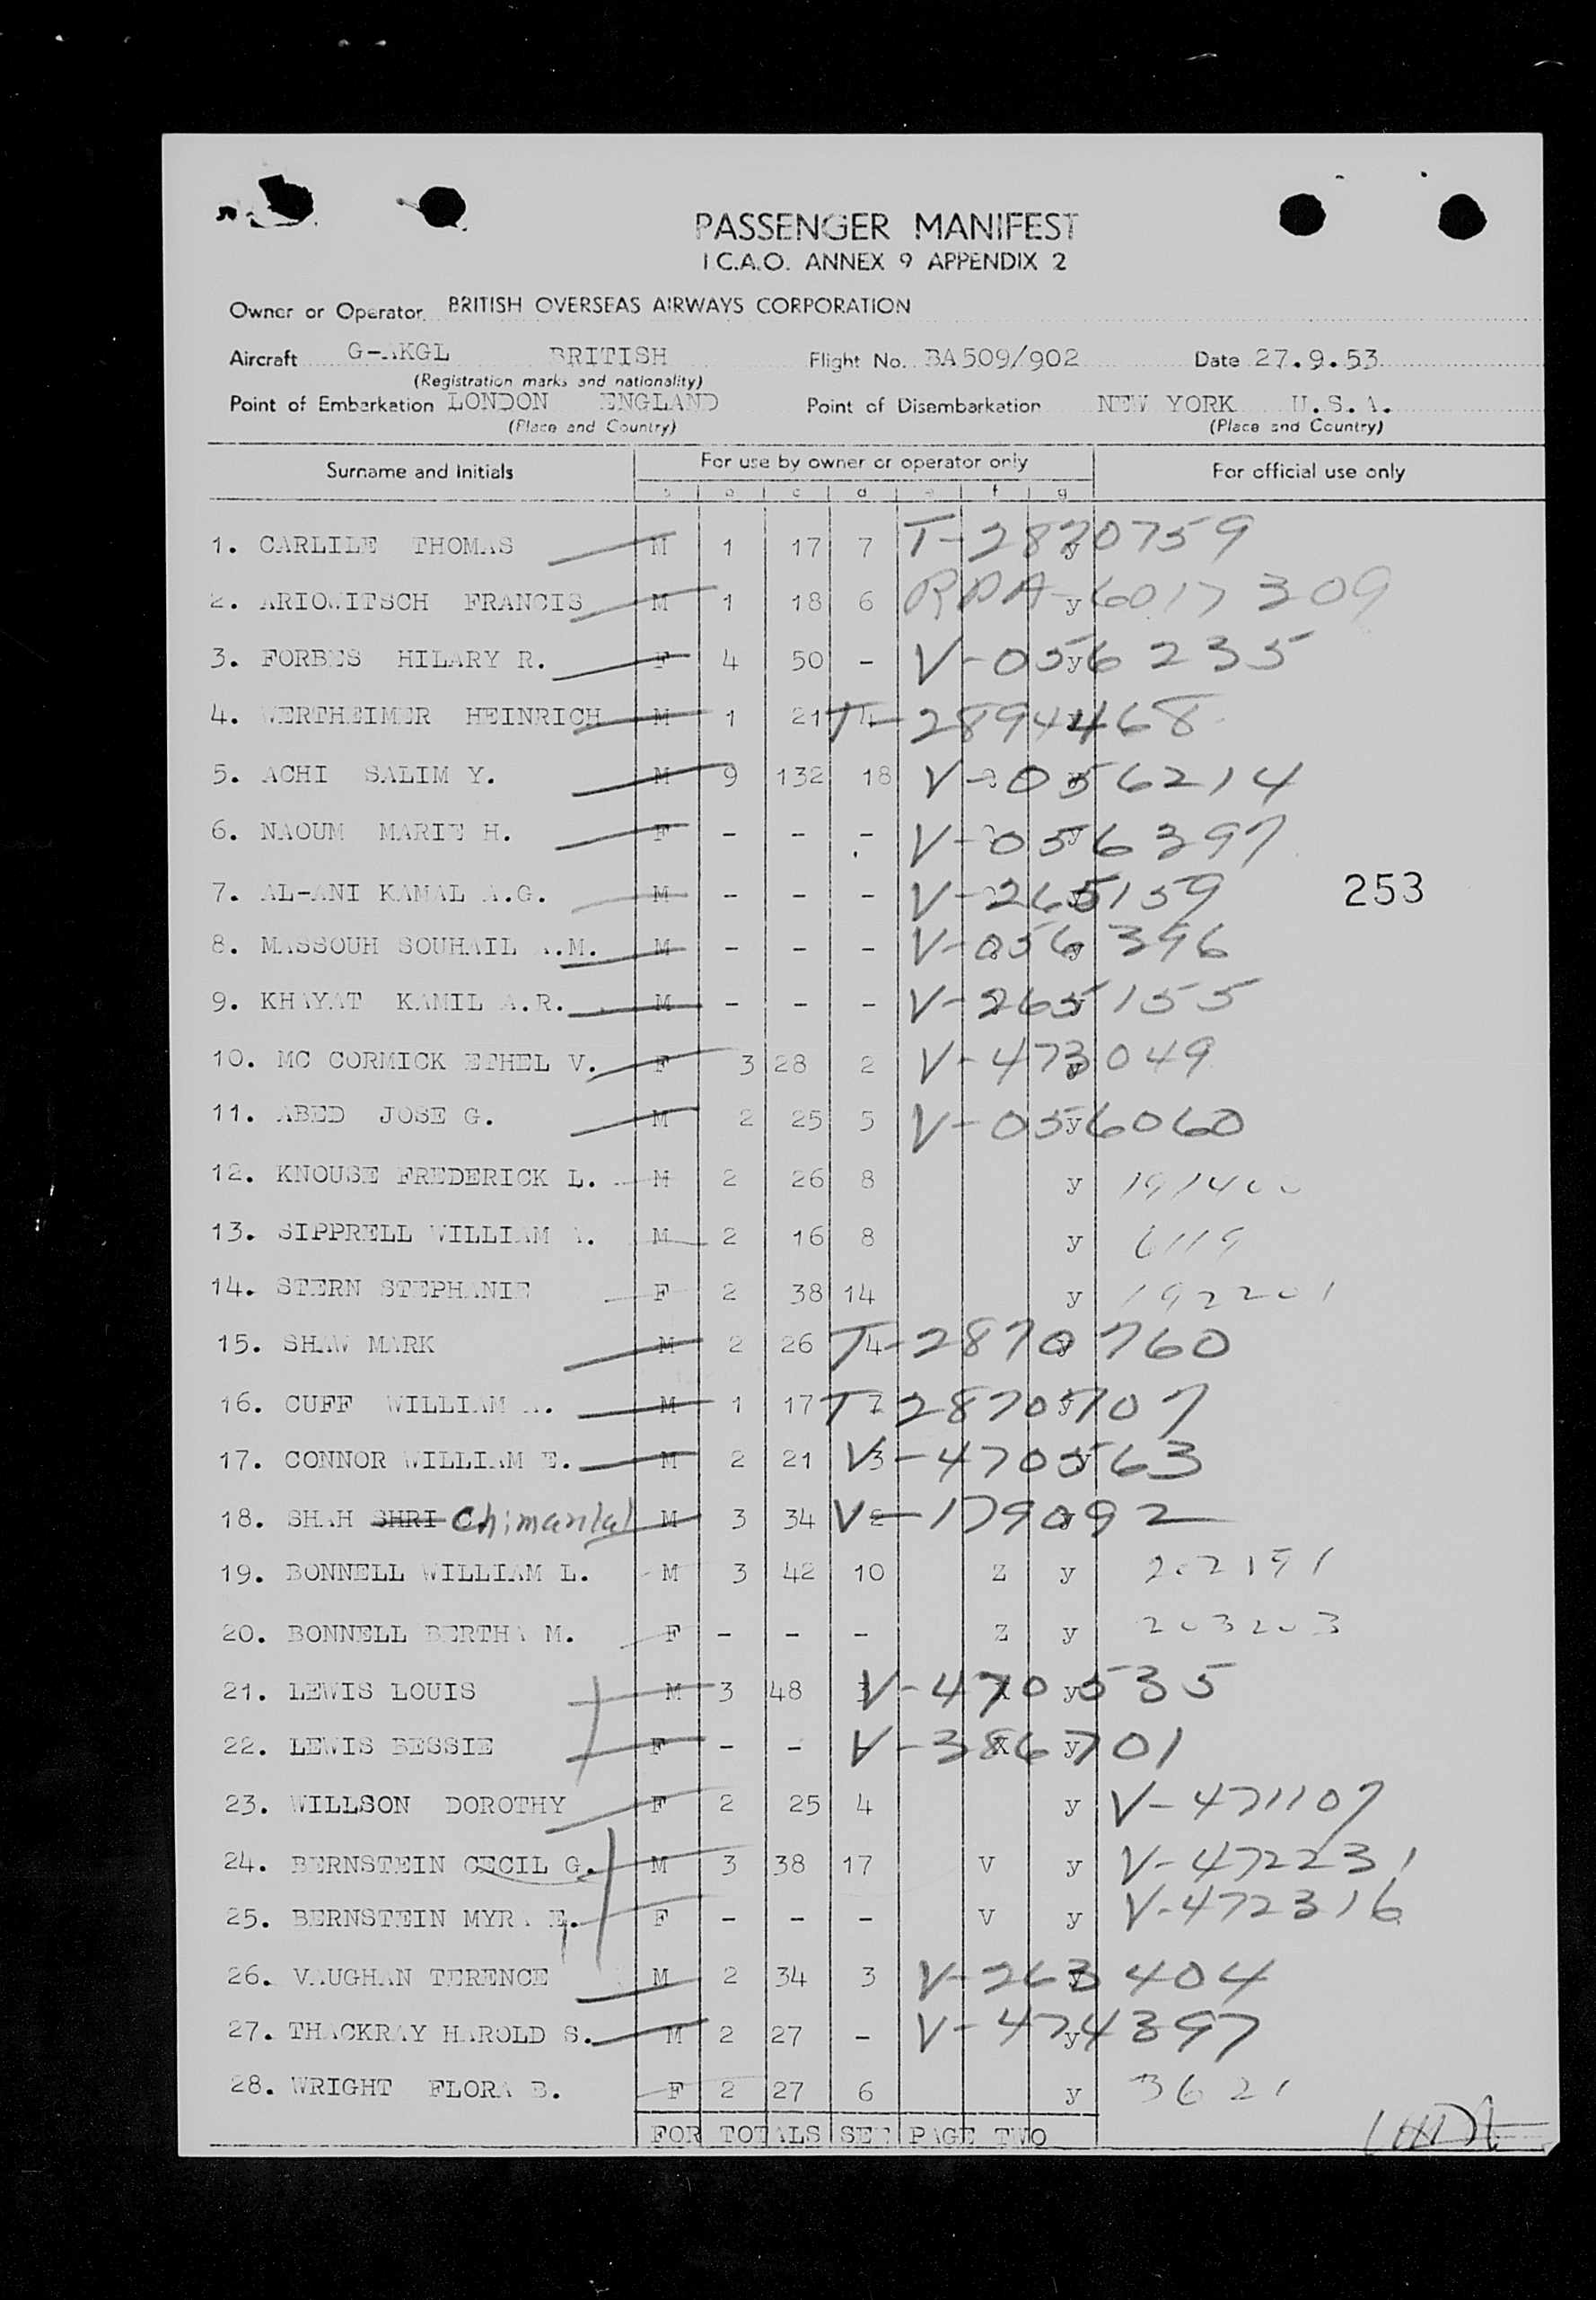 PASSENGER MANIFEST
I C.A.O. ANNEX 9 APPENDIX 2
Owner or Operator BRITISH OVERSEAS AIRWAYS CORPORATION
Aircraft G-AKGL BRITISH Flight No. BA509/902 Date 27.9.53
(Registration marks and nationality)
Point of Embarkation LONDON ENGLAND Point of Disembarkation NEW YORK U.S.A.
(Place and Country) (Place and Country)
Surname and Initials For use by owner or operator only For official use only
a b c d e f g
1. CARLILE THOMAS M 1 17 7 y T-2870759
2. ARIOWITSCH FRANCIS M 1 18 6 y RPA-6017309
3. FORBES HILARY R. F 4 50 - y V-056235
4. WERTHEIMER HEINRICH M 1 21 4 y T-2894468
5. ACHI SALIM Y. M 9 132 18 y V-056214
6. NAOUM MARIE H. F - - - y V-056397
7. AL-ANI KAMAL A.G. M - - - y V-265159 253
8. MASSOUH SOUHAIL A.M. M - - - y V-056396
9. KHAYAT KAMIL A.R. M - - - y V-265155
10. MC CORMICK ETHEL V. F 3 28 2 y V-473049
11. ABED JOSE G. M 2 25 5 y V-056060
12. KNOUSE FREDERICK L. M 2 26 8 y 191400
13. SIPPRELL WILLIAM A. M 2 16 8 y 6119
14. STERN STEPHANIE F 2 38 14 y 192201
15. SHAW MARK M 2 26 4 y T-2870760
16. CUFF WILLIAM A. M 1 17 7 y T-2870707
17. CONNOR WILLIAM E. M 2 21 3 y V-470563
18. SHAH SHRI C. Chimanlal M 3 34 2 y V-179092
19. BONNELL WILLIAM L. M 3 42 10 Z y 202191
20. BONNELL BERTHA M. F - - - Z y 203203
21. LEWIS LOUIS M 3 48 3 X y V-470535
22. LEWIS BESSIE F - - - X y V-386701
23. WILLSON DOROTHY F 2 25 4 y V-471107
24. BERNSTEIN CECIL G. M 3 38 17 V y V-472231
25. BERNSTEIN MYRA E. F - - - V y V-472316
26. VAUGHAN TERENCE M 2 34 3 y V-263404
27. THACKRAY HAROLD S. M 2 27 - y V-474397
28. WRIGHT FLORA B. F 2 27 6 y 3621
FOR TOTALS SEE PAGE TWO